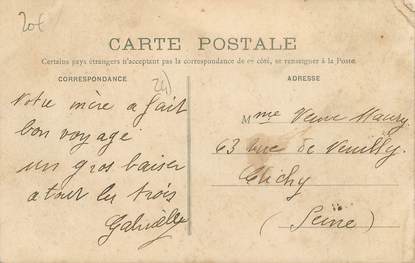 20f
CARTE POSTALE
Certains pays étrangers n'acceptant pas la correspondance de ce côté, se renseigner à la Poste.
CORRESPONDANCE
ADRESSE
Votre mère a fait
bon voyage
un gros baiser
a tout les trois
Gabrielle
Mme Veuve Maury
63 rue de Neuilly
Clichy
(Seine)